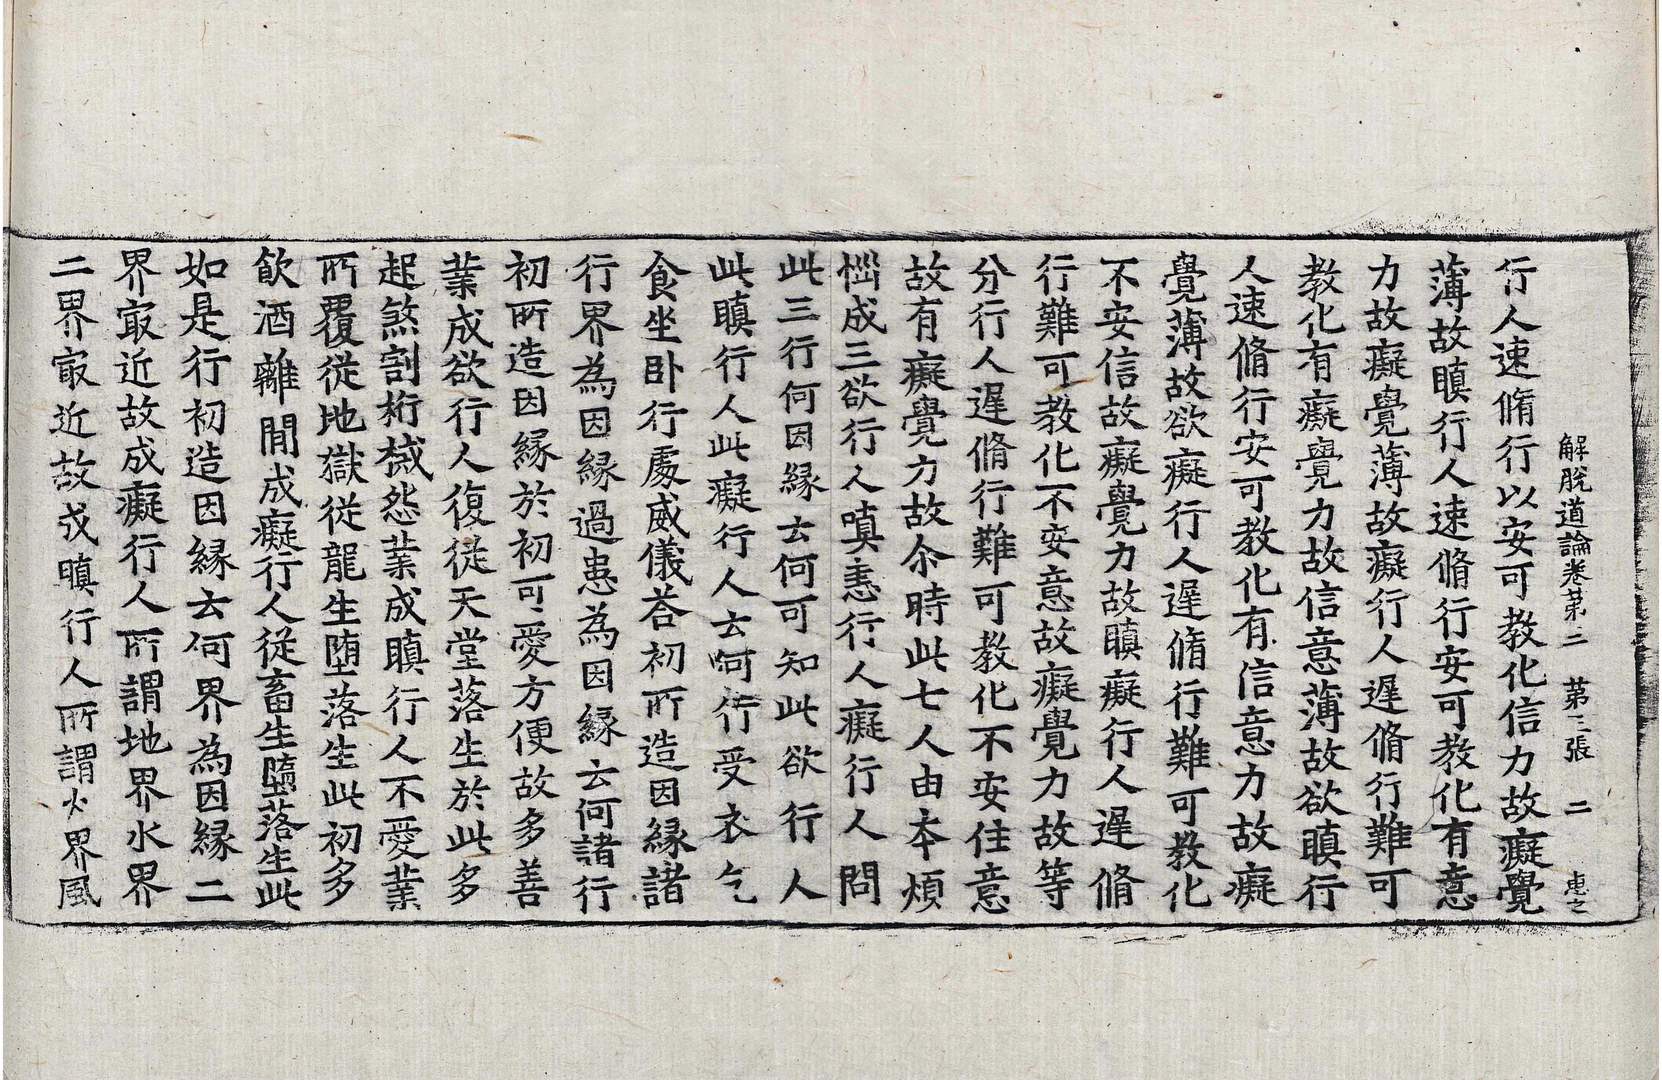 解脫道論卷苐二　苐三張　二　惠之
行人速脩行以安可教化信力故癡覺
薄故瞋行人速脩行安可教化有意
力故癡覺薄故癡行人遲脩行難可
教化有癡覺力故信意薄故欲瞋行
人速脩行安可教化有信意力故癡
覺薄故欲癡行人遲脩行難可教化
不安信故癡覺力故瞋癡行人遲脩
行難可教化不安意故癡覺力故等
分行人遲脩行難可教化不安住意
故有癡覺力故尒時此七人由本煩
惱成三欲行人嗔恚行人癡行人問
此三行何因縁云何可知此欲行人
此瞋行人此癡行人云何行受衣乞
食坐卧行處威儀荅初所造因縁諸
行界為因縁過患為因縁云何諸行
初所造因縁於初可愛方便故多善
業成欲行人復從天堂落生於此多
起煞割桁械怨業成瞋行人不愛業
所覆從地獄從龍生堕落生此初多
飲酒離間成癡行人從畜生墮落生此
如是行初造因縁云何界為因縁二
界㝡近故成癡行人所謂地界水界
二界㝡近故成瞋行人所謂火界風